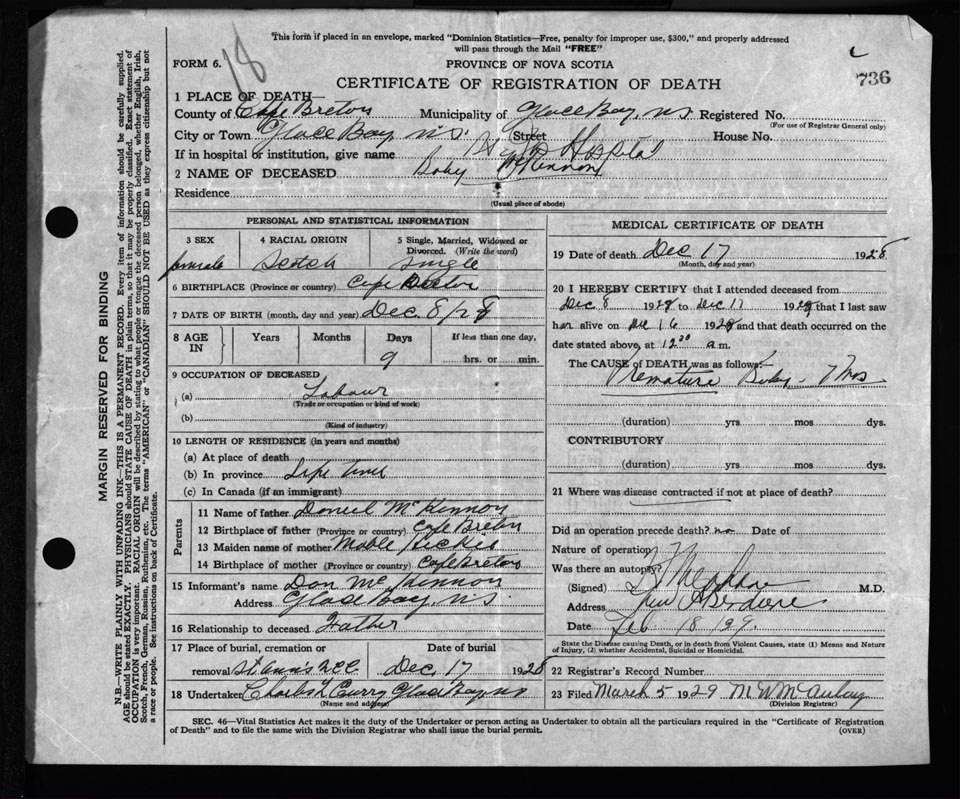 This form if placed in an envelope, marked "Dominion Statistics—Free, penalty for improper use, $300," and properly addressed
will pass through the Mail "FREE"
18
FORM 6.
PROVINCE OF NOVA SCOTIA
736
CERTIFICATE OF REGISTRATION OF DEATH
1 PLACE OF DEATH—
County of Cape Breton Municipality of Glace Bay, N.S. Registered No.
(For use of Registrar General only)
City or Town Glace Bay, N.S. (Street House No.
If in hospital or institution, give name Hospital
2 NAME OF DECEASED Baby McKinnon
Residence
(Usual place of abode)
PERSONAL AND STATISTICAL INFORMATION
3 SEX 4 RACIAL ORIGIN 5 Single, Married, Widowed or
Divorced. (Write the word)
female Scotch Single
6 BIRTHPLACE (Province or country) Cape Breton
7 DATE OF BIRTH (month, day and year) Dec. 8/28
8 AGE IN Years Months Days If less than one day,
9 hrs. or min.
9 OCCUPATION OF DECEASED
(a) Labour
(Trade or occupation or kind of work)
(b)
(Kind of industry)
10 LENGTH OF RESIDENCE (in years and months)
(a) At place of death
(b) In province Life time
(c) In Canada (if an immigrant)
Parents
11 Name of father Daniel McKinnon
12 Birthplace of father (Province or country) Cape Breton
13 Maiden name of mother Mable Hickie
14 Birthplace of mother (Province or country) Cape Breton
15 Informant's name Dan McKinnon
Address Glace Bay, N.S.
16 Relationship to deceased Father
17 Place of burial, cremation or Date of burial
removal St. Ann's Dec. 17 1928
18 Undertaker Charles L Curry Glace Bay NS
(Name and address)
MEDICAL CERTIFICATE OF DEATH
19 Date of death Dec 17 1928
(Month, day and year)
20 I HEREBY CERTIFY that I attended deceased from
Dec 8 1928 to Dec 17 1928 that I last saw
her alive on Dec 16 1928 and that death occurred on the
date stated above, at 12 a.m.
The CAUSE of DEATH was as follows:—
Premature Baby - 7 mos
(duration) yrs mos dys.
CONTRIBUTORY
(duration) yrs mos dys.
21 Where was disease contracted if not at place of death?
Did an operation precede death? no Date of
Nature of operation
Was there an autopsy?
(Signed) M.D.
Address New Aberdeen
Date Feb 18 1929
State the Disease causing Death, or in death from Violent Causes, state (1) Means and Nature
of Injury, (2) whether Accidental, Suicidal or Homicidal.
22 Registrar's Record Number
23 Filed March 5 1929
(Division Registrar)
SEC. 46—Vital Statistics Act makes it the duty of the Undertaker or person acting as Undertaker to obtain all the particulars required in the "Certificate of Registration
of Death" and to file the same with the Division Registrar who shall issue the burial permit.
(OVER)
MARGIN RESERVED FOR BINDING
N.B.—WRITE PLAINLY WITH UNFADING INK—THIS IS A PERMANENT RECORD. Every item of information should be carefully supplied.
AGE should be stated EXACTLY. PHYSICIANS should STATE CAUSE OF DEATH in plain terms, so that it may be properly classified. Exact statement of
OCCUPATION is very important. RACIAL ORIGIN will be described by stating to what people or tongue the deceased person belonged, whether English, Irish,
Scotch, French, German, Russian, Ruthenian, etc. The terms "AMERICAN" or "CANADIAN" SHOULD NOT BE USED as they express citizenship but not
a race or people. See instructions on back of Certificate.